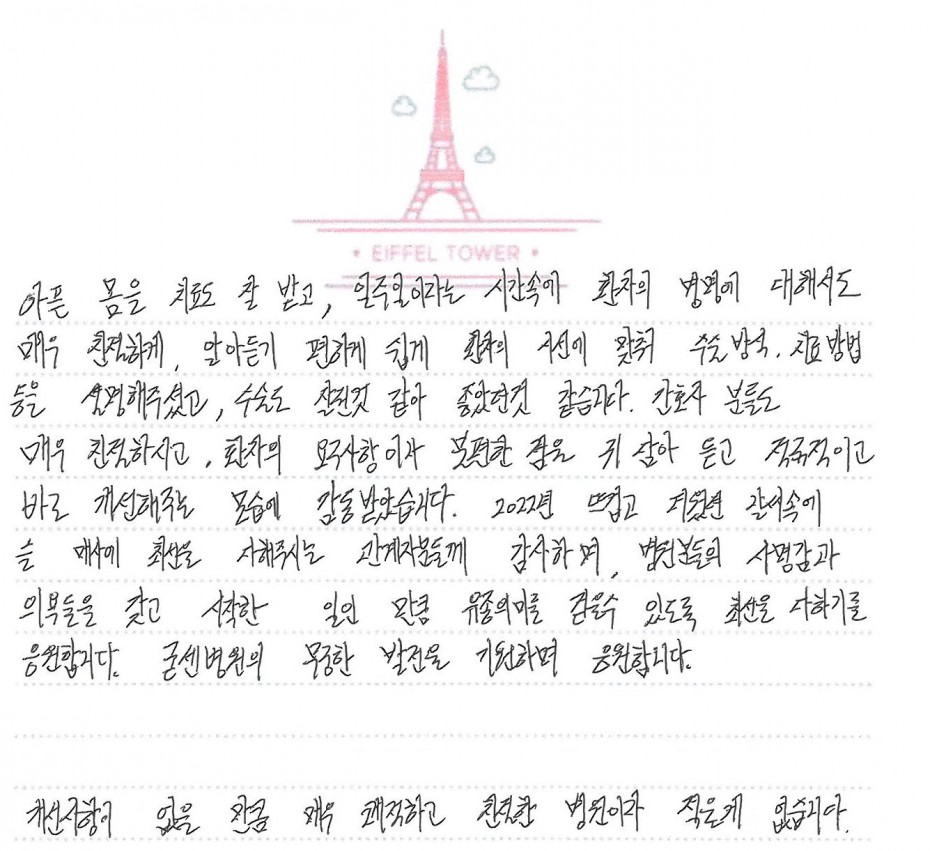 EIFFEL TOWER
아픈 몸을 치료도 잘 받고, 일주일이라는 시간속에 환자의 병명에 대해서도
매우 친절하게, 알아듣기 편하게 쉽게 환자의 시선에 맞춰 수술방식, 치료방법
등을 설명해주셨고, 수술도 잘된것 같아 좋았던것 같습니다. 간호사 분들도
매우 친절하시고, 환자의 요구사항이나 불편한 점을 귀 담아 듣고 적극적이고
바로 개선해주는 모습에 감동받았습니다. 2022년 뜨겁고 더웠던 날씨속에
늘 매사에 최선을 다해주시는 관계자분들께 감사하며, 병원분들의 사명감과
의무들을 갖고 시작한 일인 만큼 유종의미를 걷을수 있도록 최선을 다하기를
응원합니다. 굳센병원의 무궁한 발전을 기원하며 응원합니다.
개선사항이 없을 만큼 매우 쾌적하고 친절한 병원이라 적을게 없습니다.